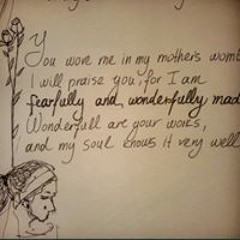 You wore me in my mother's womb
I will praise you, for I am
fearfully and wonderfully mad
Wonderfull are your works,
and my soul knows it very well